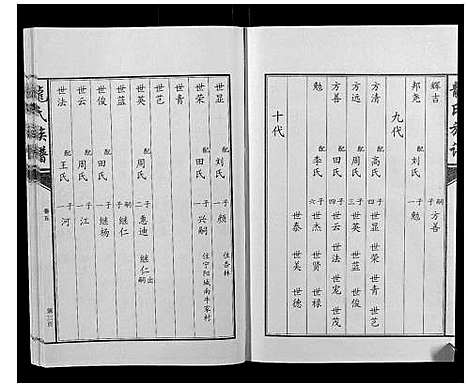 龍氏族谱
辉吉 嗣子 方善
邦尧 配刘氏 一子 勉
九代
方清 配高氏 四子 世显 世荣 世青 世艺
方远 配周氏 世英 世蓝 世俊
方善 配田氏 四子 世云 世法 世宠 世茂
勉 配李氏 六子 世杰 世贤 世禄
世泰 世美 世德
十代
世显 配刘氏 一子 颜 住杏林
世荣 配田氏 一子 兴嗣 住宁阳城南牛家村
世青
世艺
世英 配周氏 二子 惠迪 继仁出嗣
世蓝 嗣子 继仁
世俊 配田氏 一子 继杨
世云 配周氏 一子 江
世法 配王氏 一子 河
龍氏族谱 卷五